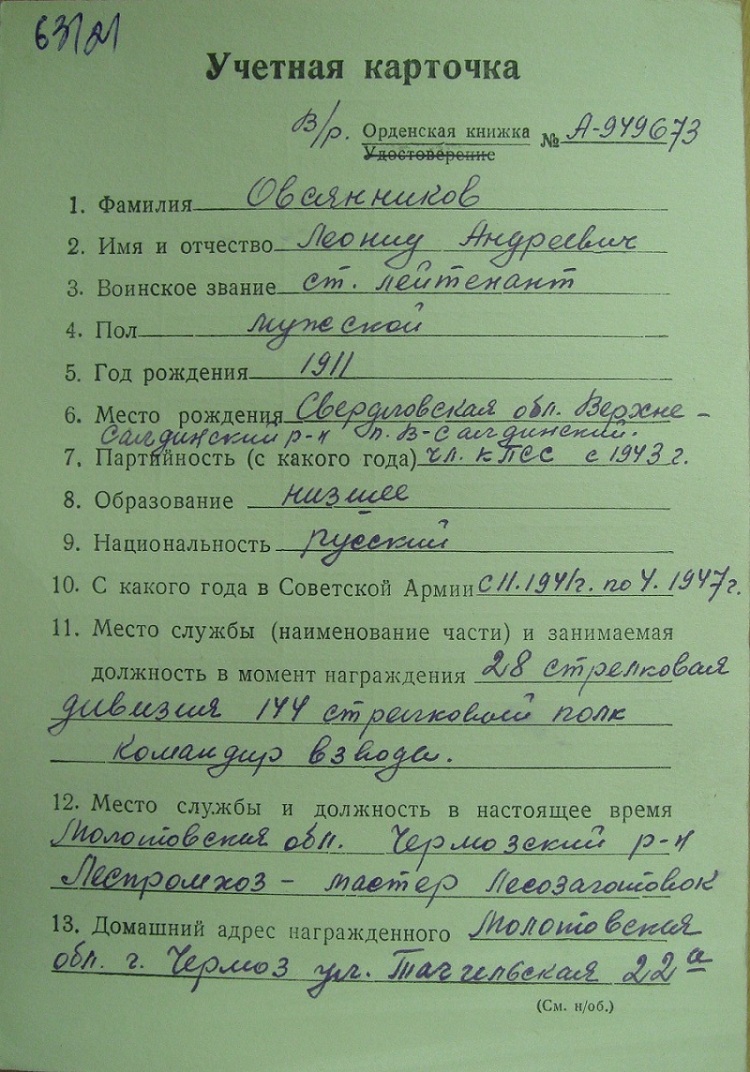 63121
Учетная карточка
В/р. Орденская книжка № А-949673
Удостоверение
1. Фамилия Овсянников
2. Имя и отчество Леонид Андреевич
3. Воинское звание ст. лейтенант
4. Пол мужской
5. Год рождения 1911
6. Место рождения Свердловская обл. Верхне-
Салдинский р-н п. В-Салдинский.
7. Партийность (с какого года) чл. КПСС с 1943 г.
8. Образование низшее
9. Национальность русский
10. С какого года в Советской Армии с 11.1941г. по 4.1947г.
11. Место службы (наименование части) и занимаемая
должность в момент награждения 28 стрелковая
дивизия 144 стрелковый полк
Командир взвода.
12. Место службы и должность в настоящее время
Молотовская обл. Чермозский р-н
Леспромхоз - мастер Лесозаготовок
13. Домашний адрес награжденного Молотовская
обл. г. Чермоз ул. Тагильская 22а
(См. н/об.)